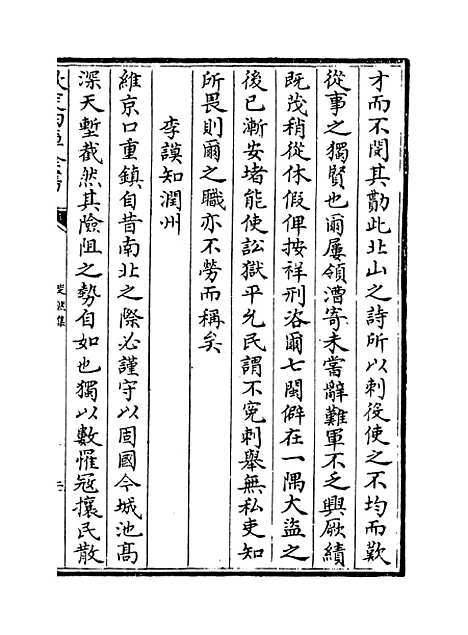 才而不閔其勩此北山之詩所以刺役使之不均而歎
從事之獨賢也爾屢領漕寄未嘗辭難軍不乏興厥績
既茂稍從休假俾按祥刑洛爾七閩僻在一隅大盜之
後已漸安堵能使訟獄平允民謂不寃刺舉無私吏知
所畏則爾之職亦不勞而稱矣
李謨知潤州
維京口重鎮自昔南北之際必謹守以固國今城池髙
深天塹截然其險阻之勢自如也獨以數罹冦攘民散